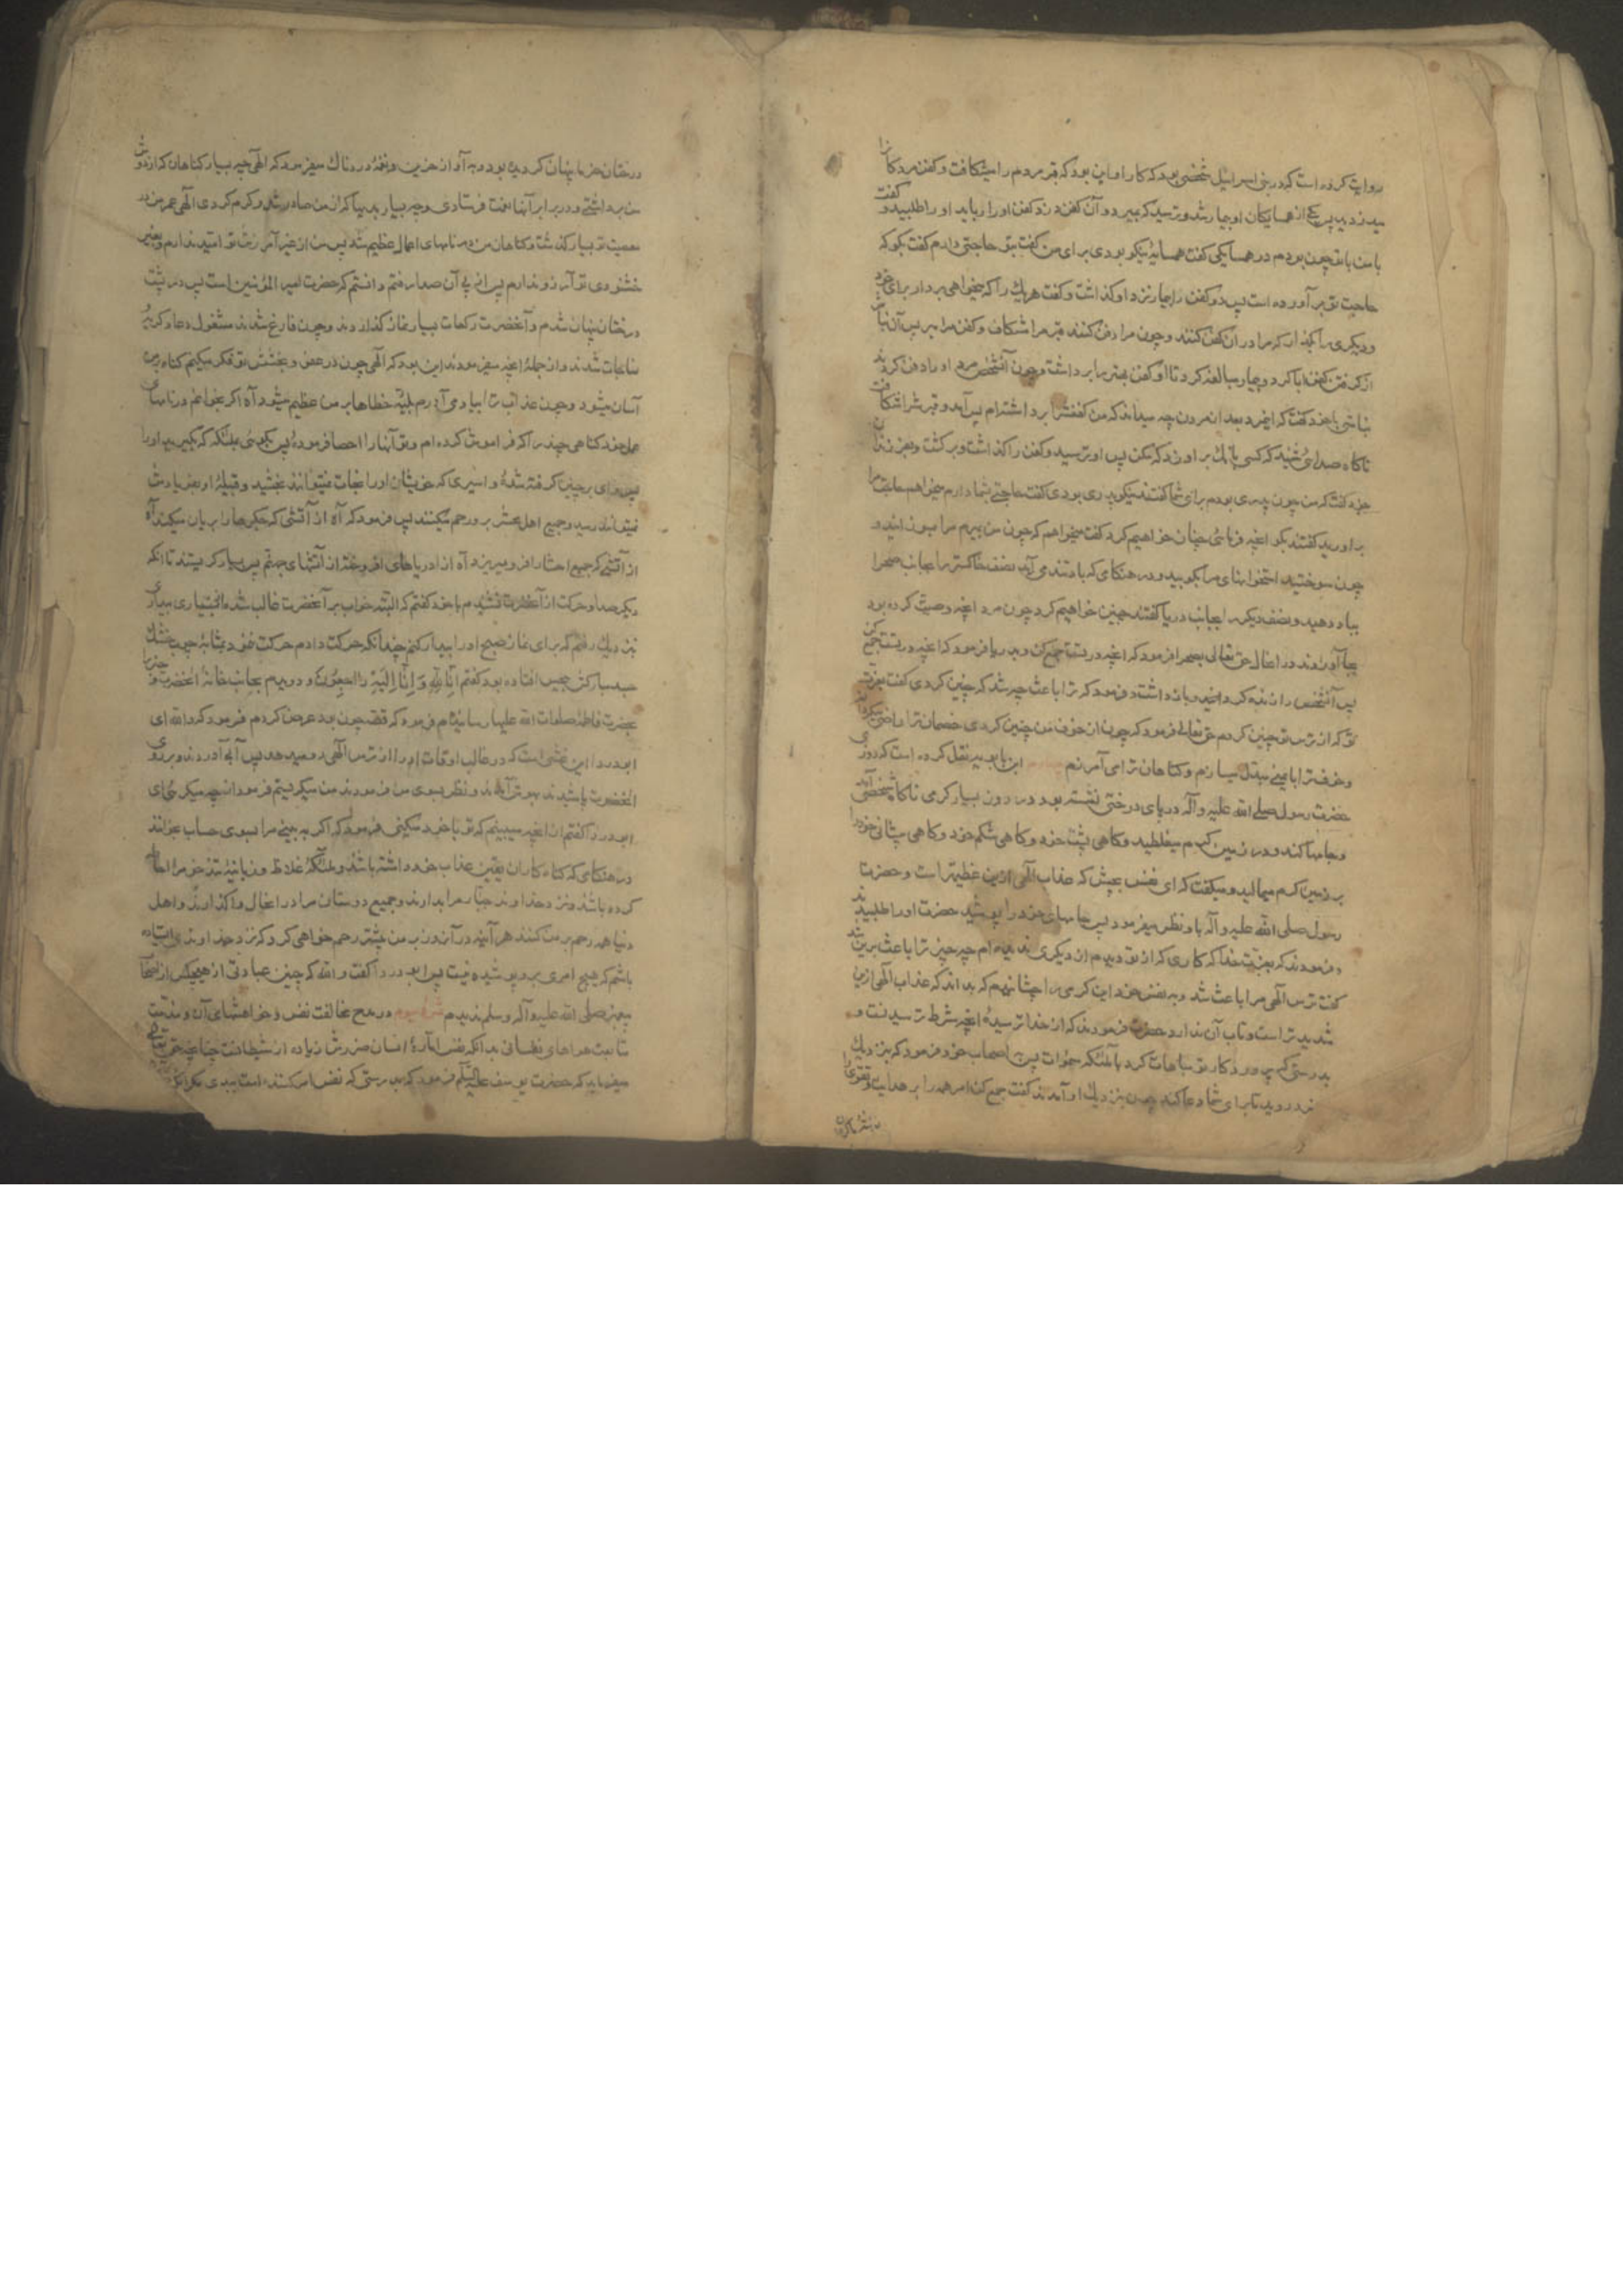 روایت کرده است که در بنی اسرائیل شخصی بود که کار او این بود که قبر مردم را میشکافت و کفن مردکانرا
میدزدید پس یکی از همسایکان او بیمار شد و ترسید که بمیرد و آن کفن دزد کفن او را برباید او را طلبید و کفت
با من با تو چون بودم در همسایکی کفت همسایۀ نیکو بودی برای من کفت بتو حاجتی دارم کفت بکو که
حاجت تو بر آورده است پس دو کفن را بیمار نزد او کذاشت و کفت هر یک را که میخواهی بردار برای خود
و دیکری را بکذار که مرا در آن کفن کنند و چون مرا دفن کنند قبر مرا مشکاف و کفن مرا مبر پس آن نباش
از کرفتن کفن ابا کرد و بیمار مبالغه کرد تا او کفن بهتر را برداشت و چون آنشخص مرد او را دفن کردند
نباش با خود کفت که اینمرد بعد از مردن چه میداند که من کفنش را برداشته‌ام پس آمد و قبرش را شکافت
ناکاه صدائی شنید که کسی بانک بر او زد که مکن پس او ترسید و کفن را کذاشت و برکشت و بفرزندان
خود کفت که من چون پدری بودم برای شما کفتند نیکو پدری بودی کفت حاجتی بشما دارم میخواهم حاجت مرا
بر آورید کفتند بکو آنچه فرمائی چنان خواهیم کرد کفت میخواهم که چون من بمیرم مرا بسوزانید و
چون سوختید استخوانهای مرا بکوبید و در هنکامی که باد تند می آید نصف خاکستر را بجانب صحرا
بباد دهید و نصف دیکر را بجانب دریا کفتند چنین خواهیم کرد چون مرد آنچه وصیت کرده بود
بجا آوردند در آنحال حق تعالی بصحرا فرمود که آنچه در تست جمع کن و بدریا فرمود که آنچه در تست جمع کن
پس آنشخص را زنده کردانید و باز داشت و فرمود که ترا باعث چه شد که چنین کردی کفت بعزت
تو که از ترس تو چنین کردم حق تعالی فرمود که چون از خوف من چنین کردی خصمان ترا راضی میکردانم
و خوف ترا بایمنی مبدل میسازم و کناهان ترا می آمرزم ابن بابویه نقل کرده است که روزی
حضرت رسول صلی الله علیه و آله در پای درختی نشسته بود در روز بسیار کرمی ناکاه شخصی آمد
و جامها کند و در زمین کرم میغلطید و کاهی پشت خود و کاهی شکم خود و کاهی پیشانی خود را
بر زمین کرم میمالید و میکفت که ای نفس بچش که عذاب الهی ازین عظیمتر است و حضرت
رسول صلی الله علیه و آله باو نظر میفرمود پس جامهای خود را پوشید حضرت او را طلبیدند
و فرمودند که بعزت خدا که کاری که از تو دیدم از دیکری ندیده‌ام چه چیز ترا باعث برین شد
کفت ترس الهی مرا باعث شد و بنفس خود این کرمی را چشانیدم که بداند که عذاب الهی ازین
شدیدتر است و تاب آن ندارد حضرت فرمودند که از خدا ترسیدۀ آنچه شرط ترسیدنست و
بدرستی که پروردکار تو مباهات کرد با ملئکه سموات پس باصحاب خود فرمود که بنزدیک
نزد روید تا برای شما دعا کند چون بنزدیک او آمدند کفت جمع کن امر همه را بر هدایت و تقوی را
درختان خرما پنهان کردیده بود و به آواز حزین و نغمۀ دردناک میفرمود که الهی چه بسیار کناهان که از دوش
من برداشتی و در برابر آنها نعمت فرستادی و چه بسیار بدیها که از من صادر شد و کرم کردی الهی عمر من در
معصیت تو بسیار کذشت و کناهان من در نامهای اعمال عظیم شد پس من از غیر آمرزش تو امید ندارم و بغیر
خشنودی تو آرزو ندارم پس از پی آن صدا رفتم دانستم که حضرت امیر المؤمنین است پس در پشت
درختان پنهان شدم و آنحضرت رکعات بسیار نماز کذاردند و چون فارغ شدند مشغول دعا و کریه
مناجات شدند و از جملۀ آنچه میفرمودند این بود که الهی چون در عفو و بخشش تو فکر میکنم کناه بر من
آسان میشود و چون عذاب ترا بیاد می آورم بلیۀ خطاها بر من عظیم میشود آه اکر بخوانم در نامهای
عمل خود کناهی چند را که فراموش کرده‌ام و تو آنها را احصا فرمودۀ پس بکوئی بملئکه که بکیرید او را
پس وای بر چنین کرفته شدۀ و اسیری که خویشان او را نجات نتوانند بخشید و قبیلۀ او بفریادش
نتوانند رسید و جمیع اهل محشر بر او رحم میکنند پس فرمود که آه از آتشی که جکرها را بریان میکند آه
از آتشی که جمیع احشا را فرو میریزد آه از دریاهای افروخته از آتشهای جهنم پس بسیار کریستند تا آنکه
دیکر صدا و حرکت از آنحضرت نشنیدم با خود کفتم که البته خواب بر آنحضرت غالب شده از بسیاری بیداری
نزدیک رفتم که برای نماز صبح او را بیدار کنم چندانکه حرکت دادم حرکت نفرمود بمثابه چوب خشک
جسد مبارکش بیحس افتاده بود کفتم انّا لله و انّا الیه راجعون و دویدم بجانب خانۀ آنحضرت و خبر را
بحضرت فاطمه صلوات الله علیها رسانیدم فرمود که قصه چون بود عرض کردم فرمود که والله ای
ابو دردا این غشی است که در غالب اوقات او را از ترس الهی رو میدهد پس آب آوردند و بر روی
آنحضرت پاشیدند بهوش آمدند و نظر بسوی من فرمودند من میکریستم فرمود از چه میکریی ای
ابو دردا کفتم از آنچه میبینم که تو با خود میکنی فرمود که اکر به بینی مرا بسوی حساب بخوانند
در هنکامی که کناه کاران یقین بعذاب خود داشته باشند و ملئکۀ غلاظ و زبانیۀ تندخو مرا احاطه
کرده باشند و نزد خداوند جبار مرا بدارند و جمیع دوستان مرا در آنحال واکذارند و اهل
دنیا همه رحم بر من کنند هر آینه در آنروز بر من بیشتر رحم خواهی کرد که نزد خداوندی ایستاده
باشم که هیچ امری برو پوشیده نیست پس ابو دردا کفت والله که چنین عبادتی از هیچیک از اصحاب
پیغمبر صلی الله علیه و آله و سلم ندیدم در مدح مخالفت نفس و خواهشهای آن و مذمت
متابعت هواهای نفسانی بدانکه نفس امارۀ انسان ضررش زیاده از شیطانست چنانچه حق تعالی
میفرماید که حضرت یوسف علیه السلام فرمود که بدرستی که نفس امر کننده است ببدی مکر آنکه